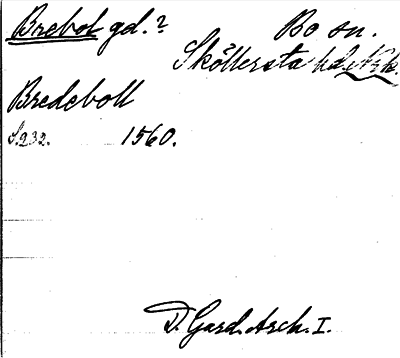 Brebol gd.? Bo sn.
Sköllersta hd. Nrk.
Bredeboll
S.232. 1560.
D. Gard. Arch. I.